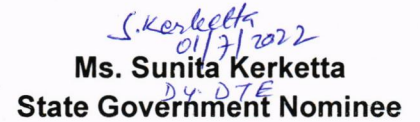 S. Kerketta
01/7/2022
Ms. Sunita Kerketta
Dy. DTE
State Government Nominee